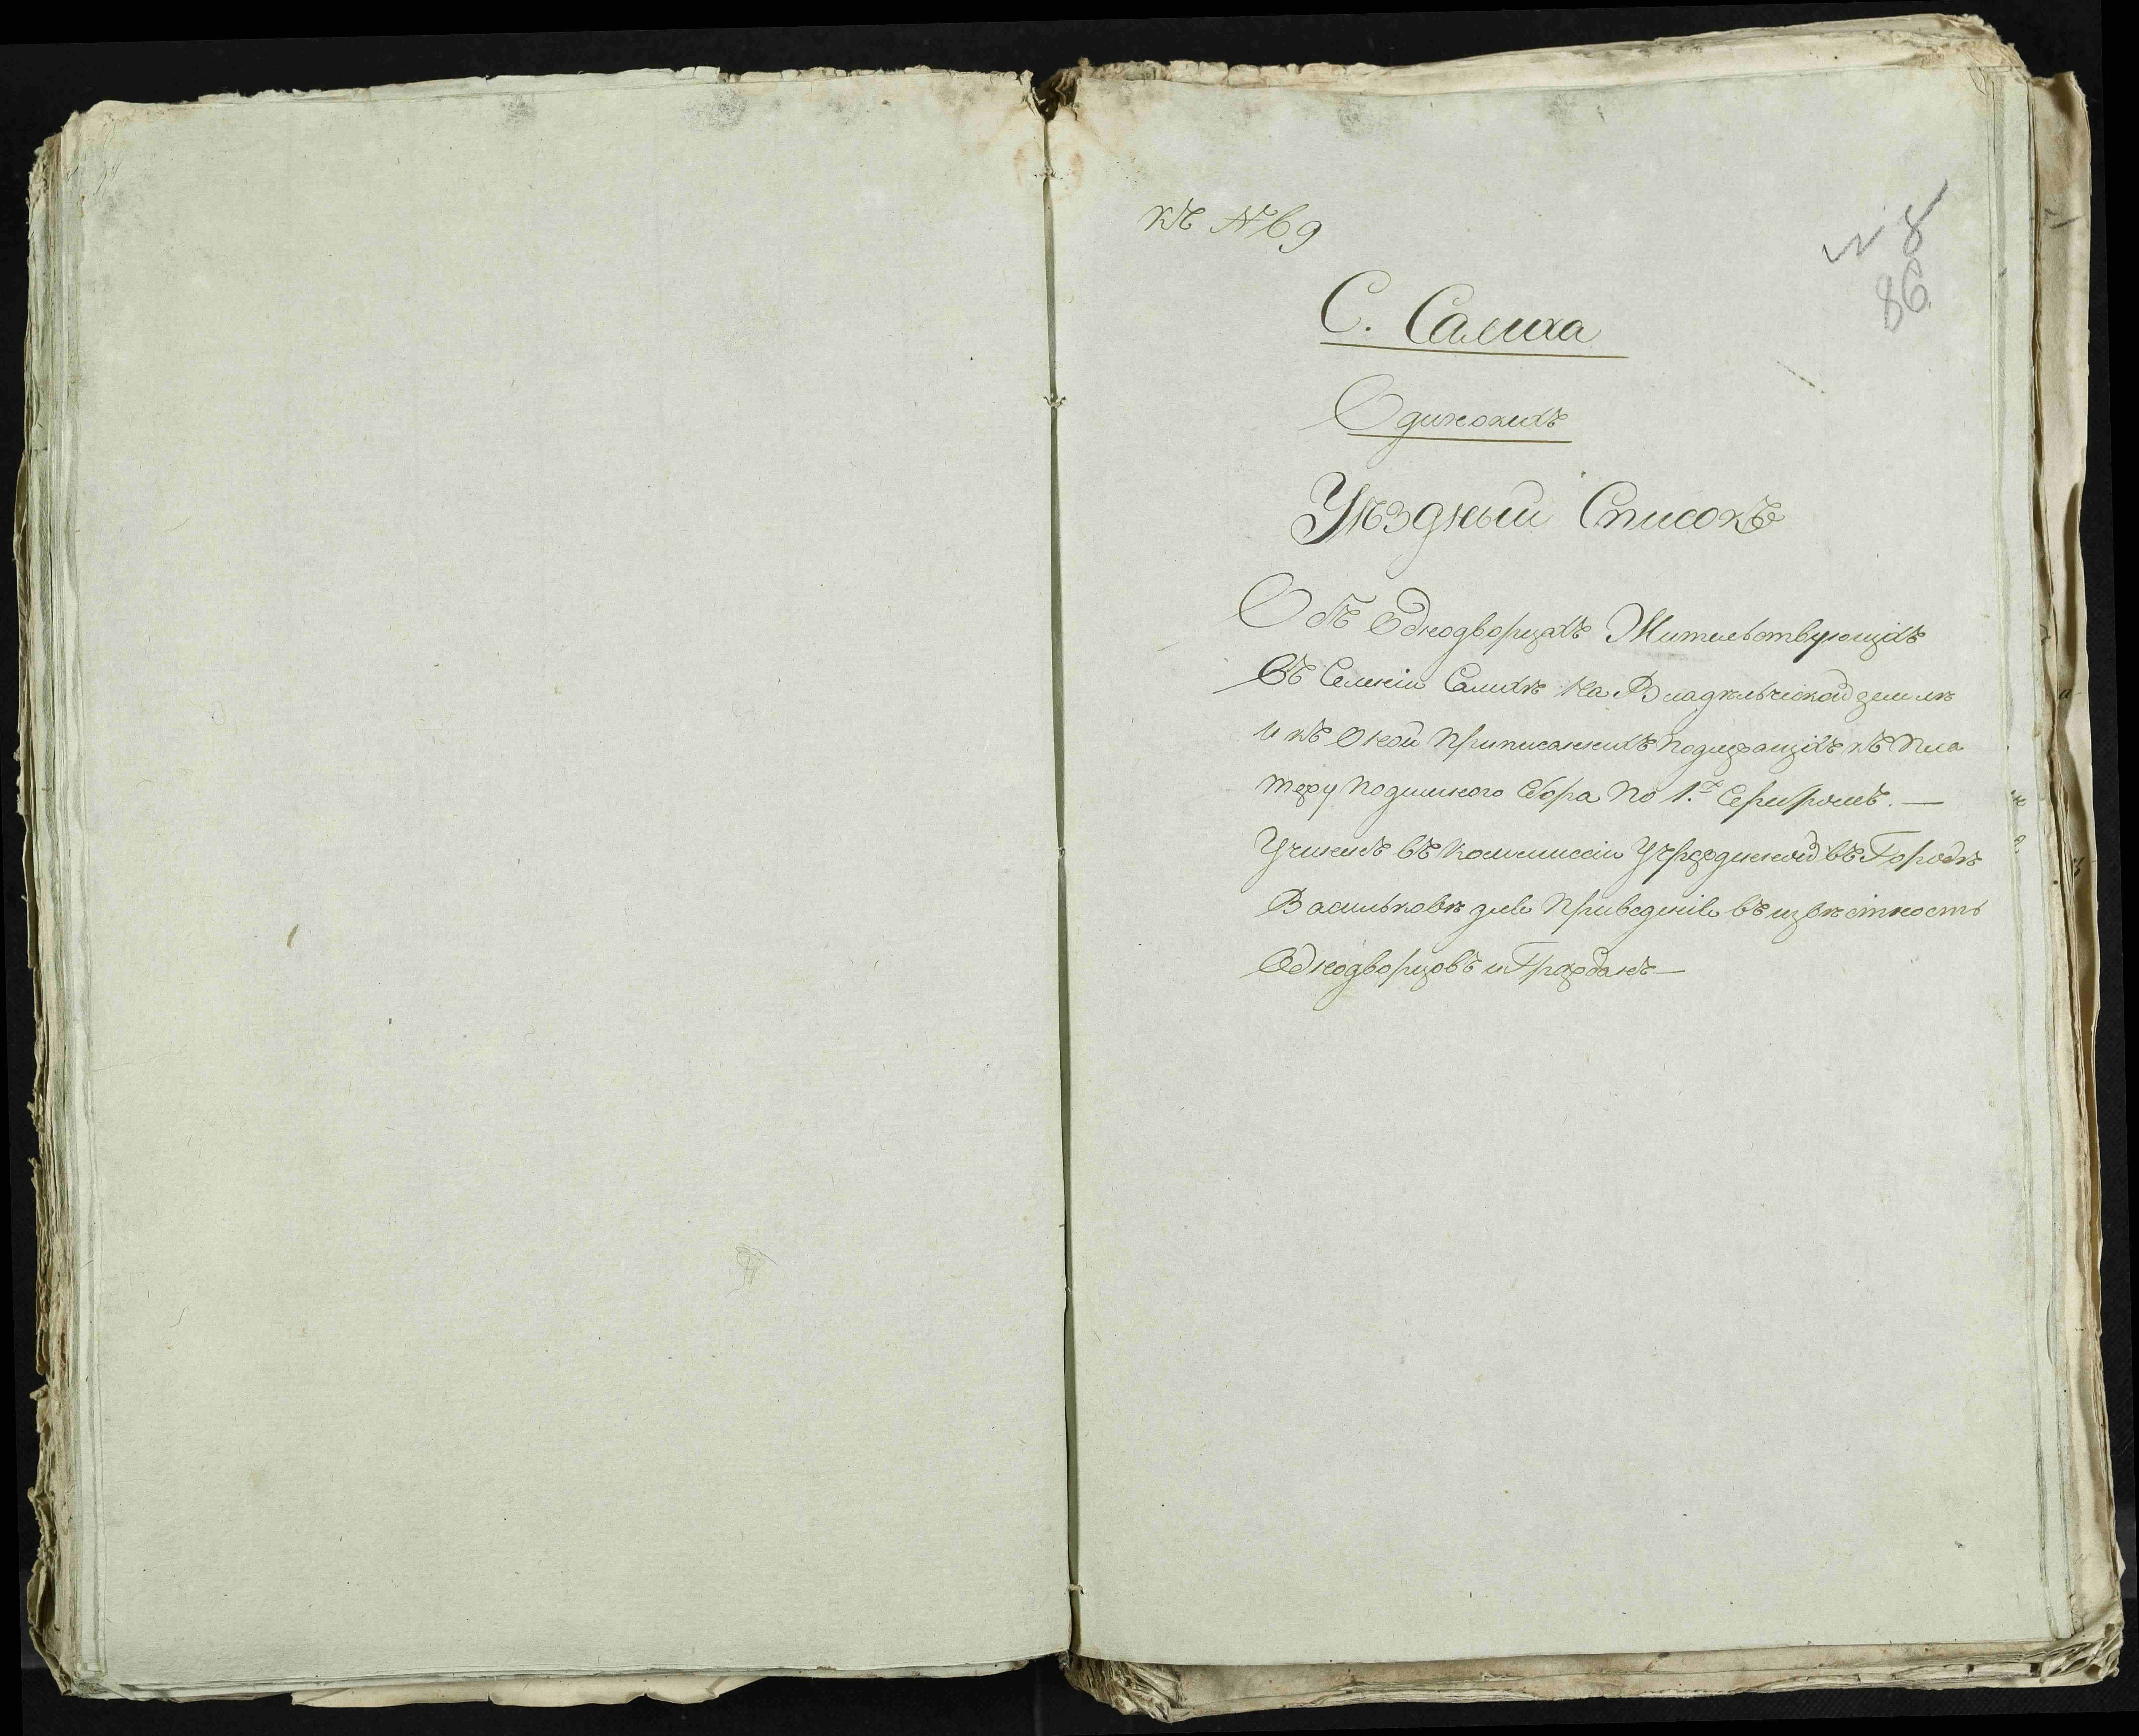 къ № 69
8
86
С. Салиха
Одинокихъ
Уѣздный Списокъ
Объ Однодворцахъ Жительствующихъ
Въ Селеніи Салихѣ на Владѣльческой землѣ
и къ Оной приписанныхъ подлежащихъ къ пла
тежу подымного Сбора по 1.р Серебромъ. —
Учиненъ въ Коммиссіи Учрежденной въ Городѣ
Васильковѣ для приведенія въ извѣстность
Однодворцовъ и Гражданъ —